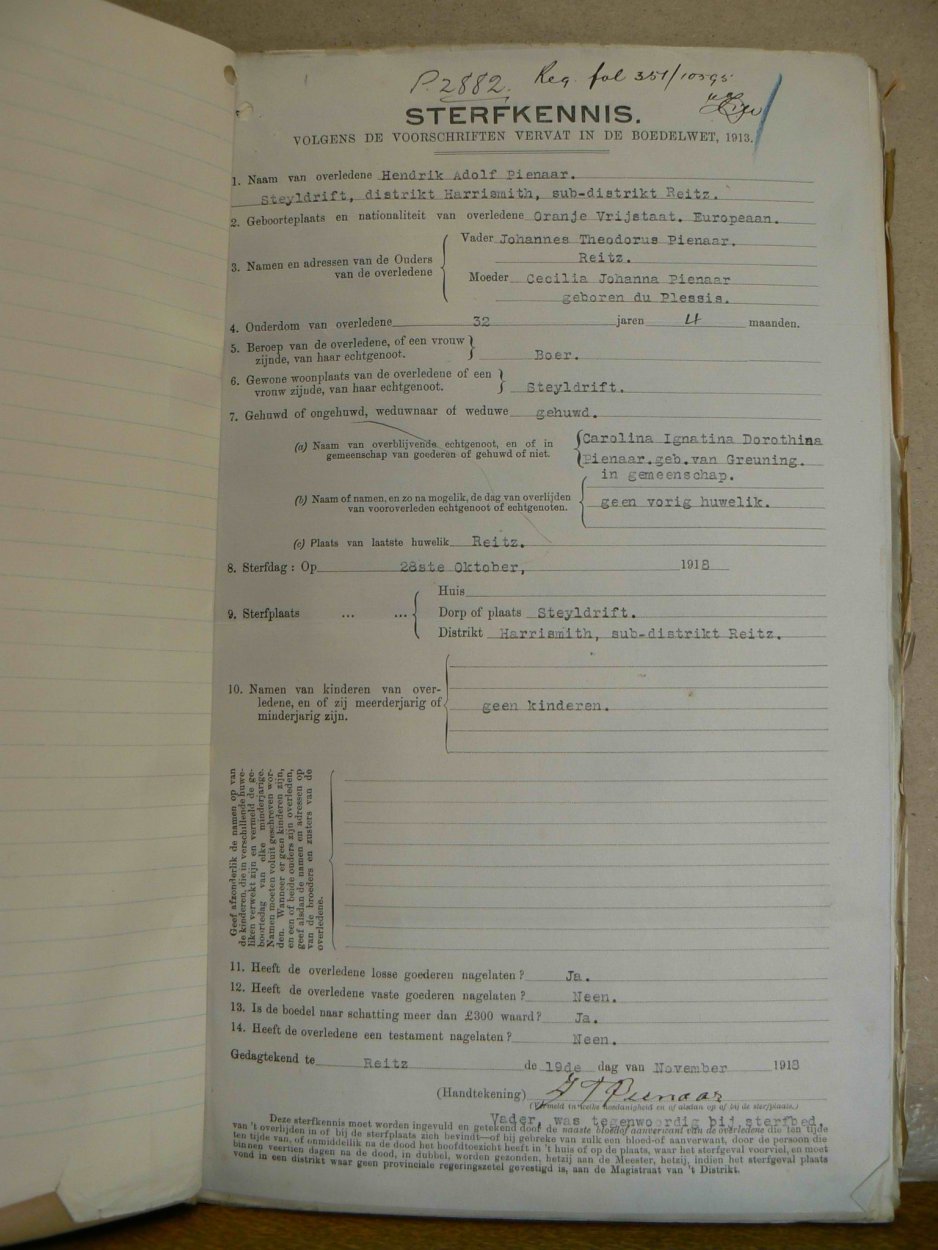 P. 2882. Reg. fol 351/10595
STERFKENNIS.
VOLGENS DE VOORSCHRIFTEN VERVAT IN DE BOEDELWET, 1913.
1. Naam van overledene Hendrik Adolf Pienaar.
Steyldrift, distrikt Harrismith, sub-distrikt Reitz.
2. Geboorteplaats en nationaliteit van overledene Oranje Vrijstaat. Europeaan.
3. Namen en adressen van de Ouders van de overledene
Vader Johannes Theodorus Pienaar.
Reitz.
Moeder Cecilia Johanna Pienaar
geboren du Plessis.
4. Onderdom van overledene 32 jaren 4 maanden.
5. Beroep van de overledene, of een vrouw
zijnde, van haar echtgenoot. Boer.
6. Gewone woonplaats van de overledene of een
vrouw zijnde, van haar echtgenoot. Steyldrift.
7. Gehuwd of ongehuwd, weduwnaar of weduwe gehuwd.
(a) Naam van overblijvende echtgenoot, en of in
gemeenschap van goederen of gehuwd of niet.
Carolina Ignatina Dorothina
Pienaar.geb.van Greuning.
in gemeenschap.
(b) Naam of namen, en zo na mogelik, de dag van overlijden
van vooroverleden echtgenoot of echtgenoten.
geen vorig huwelik.
(c) Plaats van laatste huwelik Reitz.
8. Sterfdag: Op 28ste Oktober, 1918
9. Sterfplaats ... ...
Huis
Dorp of plaats Steyldrift.
Distrikt Harrismith, sub-distrikt Reitz.
10. Namen van kinderen van over-
ledene, en of zij meerderjarig of
minderjarig zijn.
geen kinderen.
Geef afzonderlik de namen op van
de kinderen, die in verschillende huwe-
liken verwekt zijn en vermeld de ge-
boortedag van elke minderjarige.
Namen moeten voluit geschreven wor-
den. Wanneer er geen kinderen zijn,
en een of beide ouders zijn overleden,
geef alsdan de namen en adressen op
van de broeders en zusters van de
overledene.
11. Heeft de overledene losse goederen nagelaten? Ja.
12. Heeft de overledene vaste goederen nagelaten? Neen.
13. Is de boedel naar schatting meer dan £300 waard? Ja.
14. Heeft de overledene een testament nagelaten? Neen.
Gedagtekend te Reitz de 19de dag van November 1918
(Handtekening) J T Pienaar
(Vermeld in welke hoedanigheid en of alsdan op of bij de sterfplaats.)
Vader, was tegenwoordig bij sterfbed.
Deze sterfkennis moet worden ingevuld en getekend door de naaste bloed of aanverwant van de overledene die ten tijde
van 't overlijden in of bij de sterfplaats zich bevindt—of bij gebreke van zulk een bloed-of aanverwant, door de persoon die
ten tijde van, of onmiddellik na de dood het hoofdtoezicht heeft in 't huis of op de plaats, waar het sterfgeval voorviel, en moet
binnen veertien dagen na de dood, in dubbel, worden gezonden, hetzij aan de Meester, hetzij, indien het sterfgeval plaats
vond in een distrikt waar geen provinciale regeringszetel gevestigd is, aan de Magistraat van 't Distrikt.